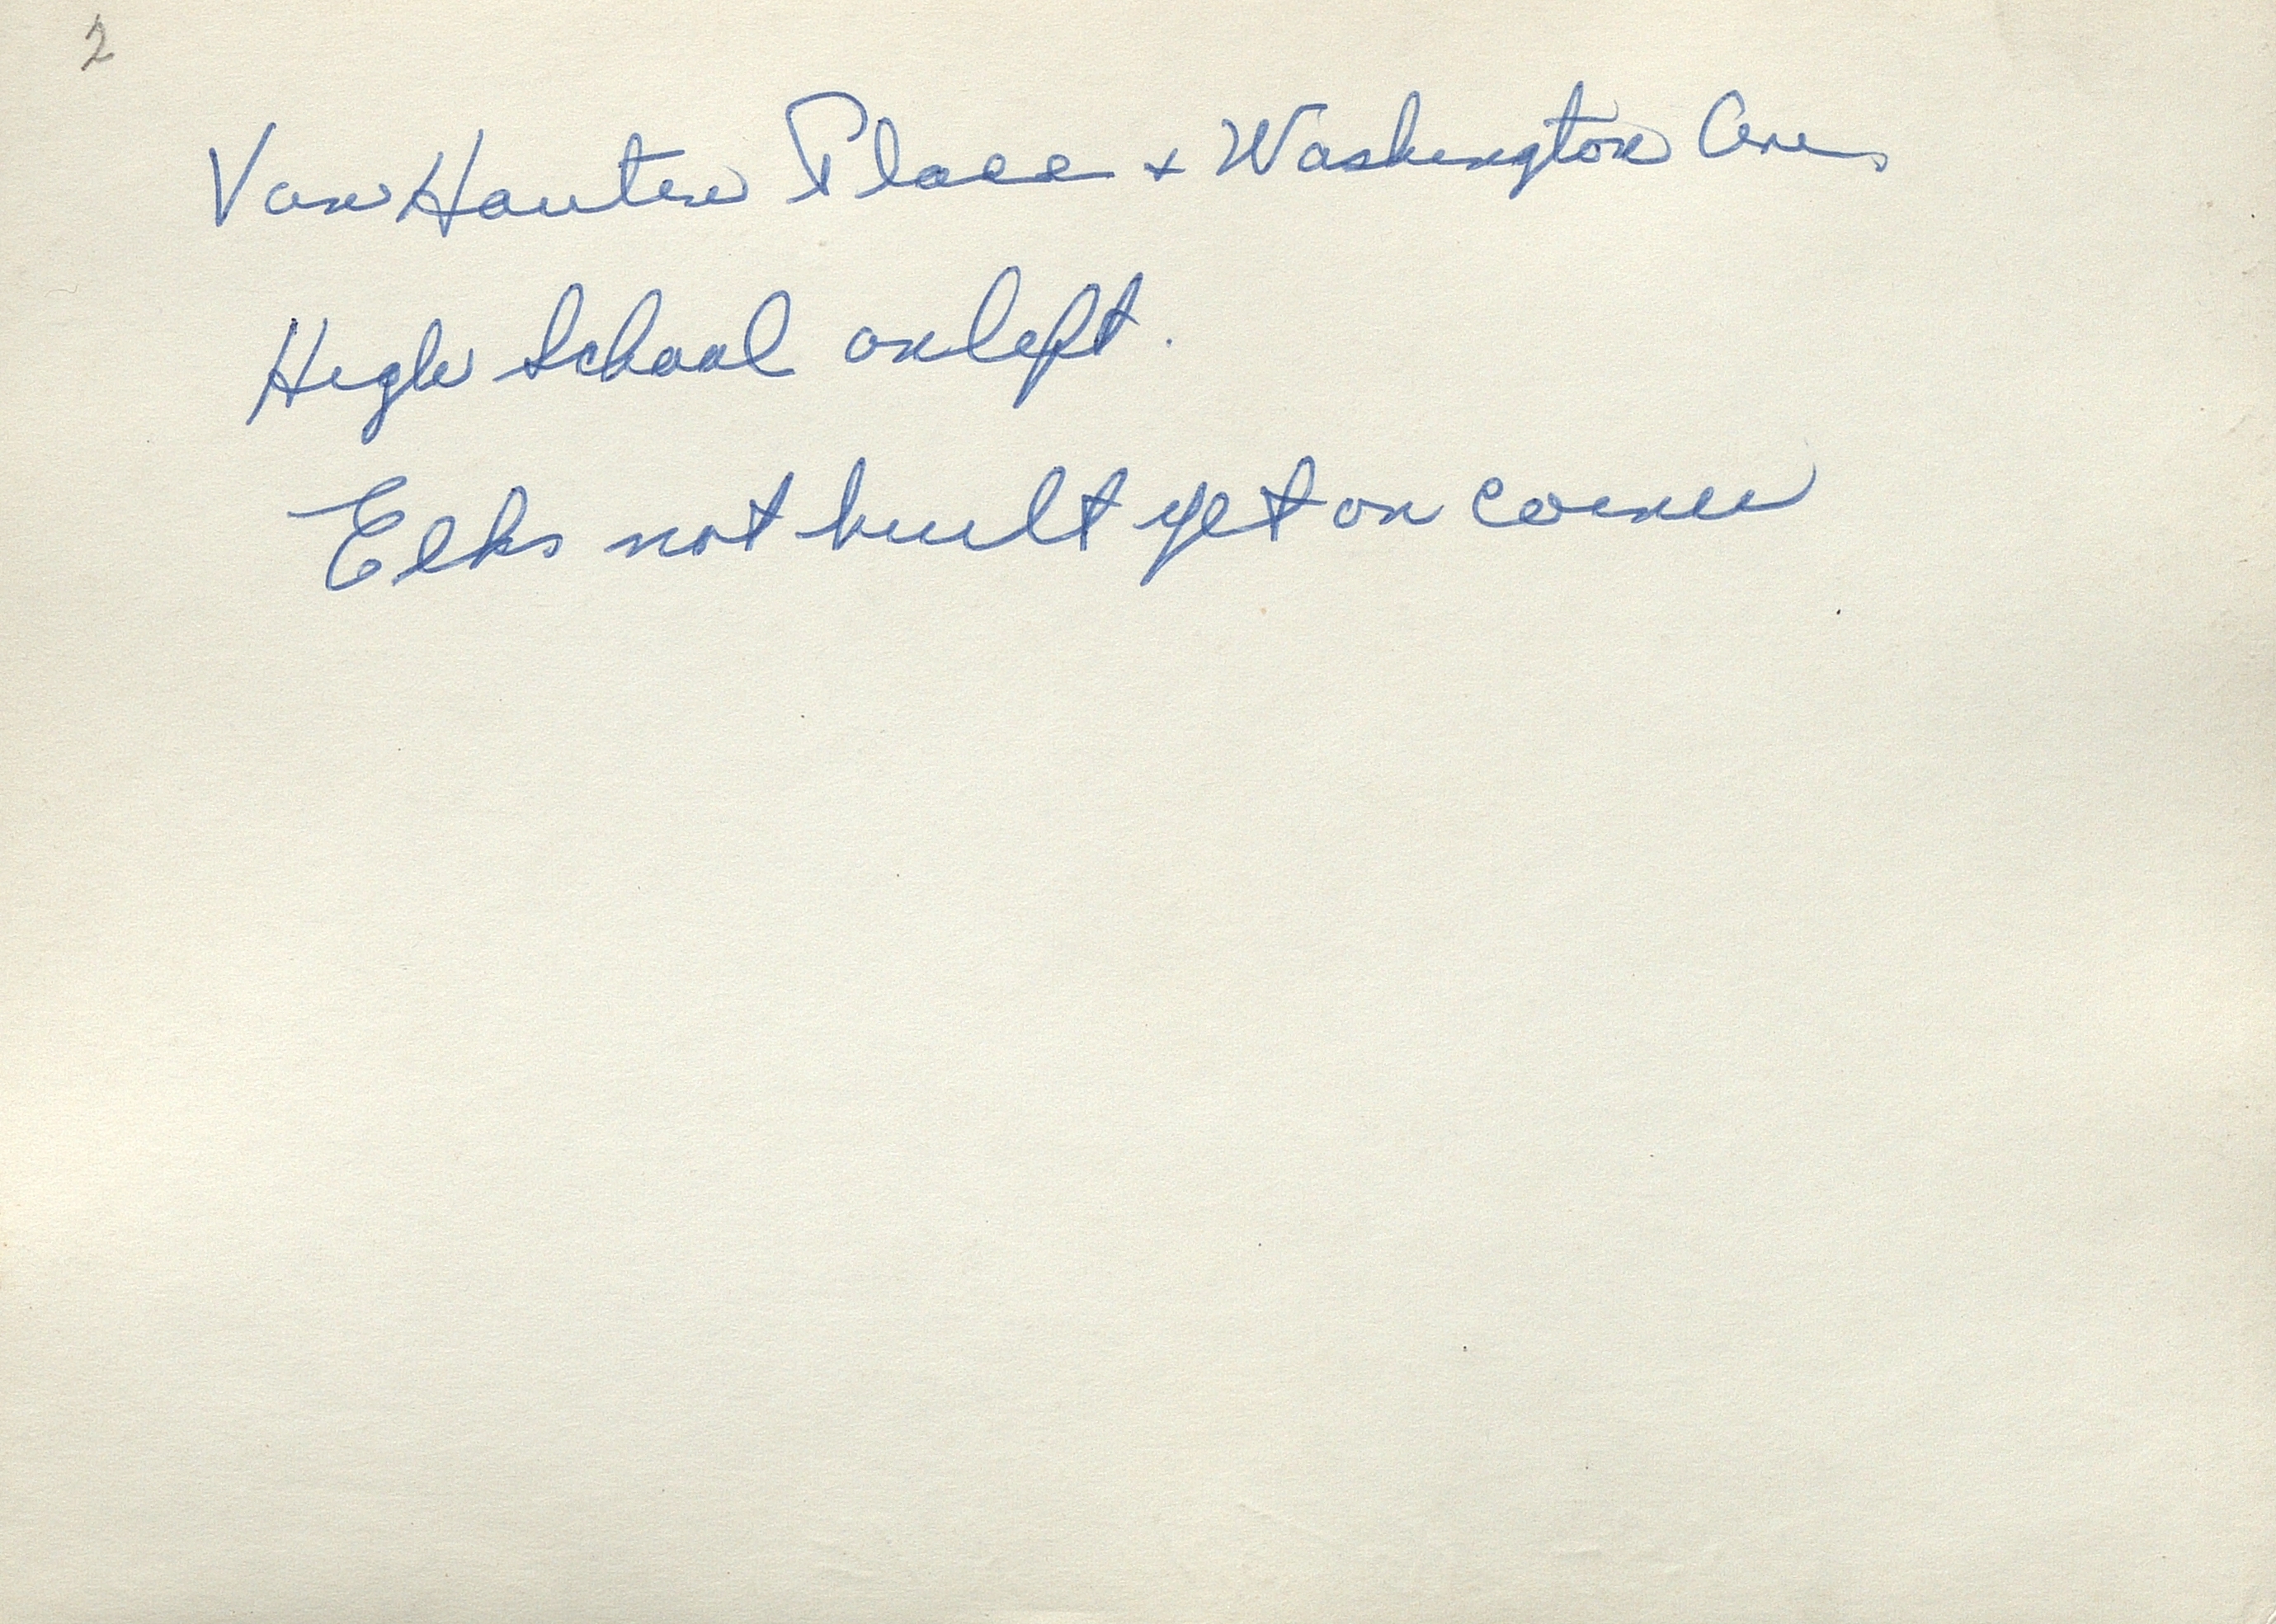 2
Van Houten Place + Washington Ave.
High School on left.
Elks not built yet on corner